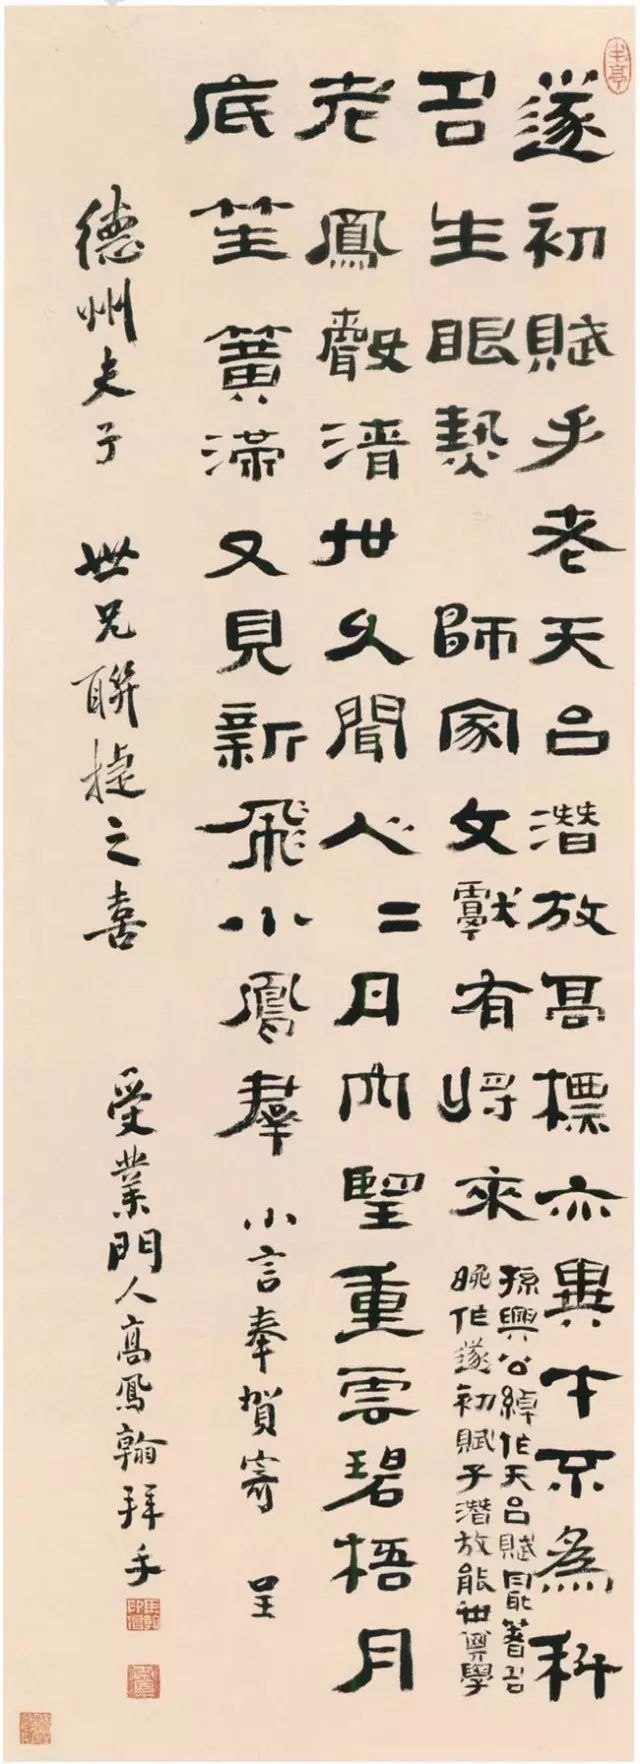 半亭
遂初賦手老天台潛放高標亦異才不為科
名生眼熱 師家文獻有將來
孫興公綽作天台賦最著名
晚作遂初賦子潛放能世尊學
老鳳聲清世久聞二月內望重雲碧梧月
底笙簧滿又見新飛小鳳群 小言奉賀寄 呈
德州夫子 世兄聯捷之喜 受業門人高鳳翰拜手